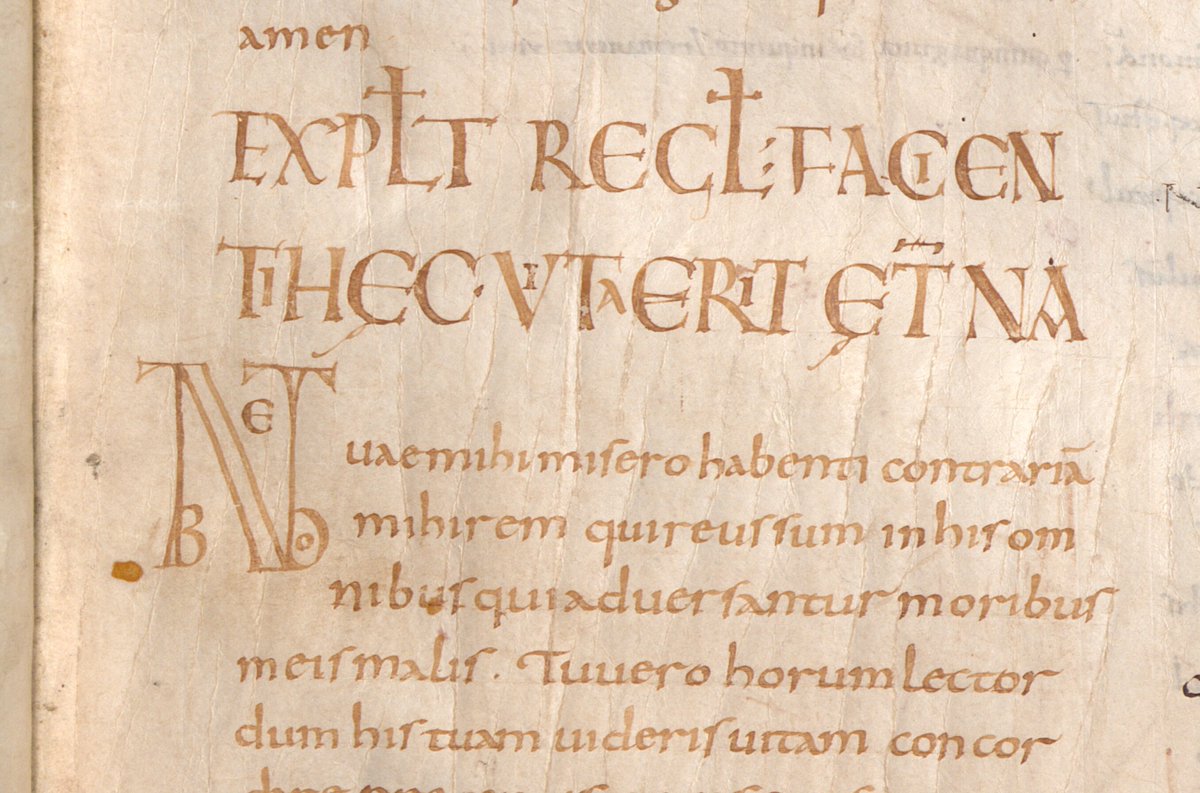 amen
EXPLT REGL: FACIEN
TI HEC VITA ERIT ET̄NA
NE
B O
uae mihi misero habenti contrariā
mihi rem qui reus sum in his om
nibus qui aduersantur moribus
meis malis. Tu uero horum lector
dum his tuam uideris uitam concor